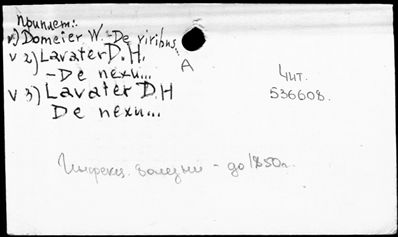 Приплет:
v1) Domeier W. - De viribus...
v 2) Lavater D. H.
A
- De nexu...
Чит.
v 3) Lavater D. H
536608.
De nexu...
Инфекц. болезни - до 1850г.